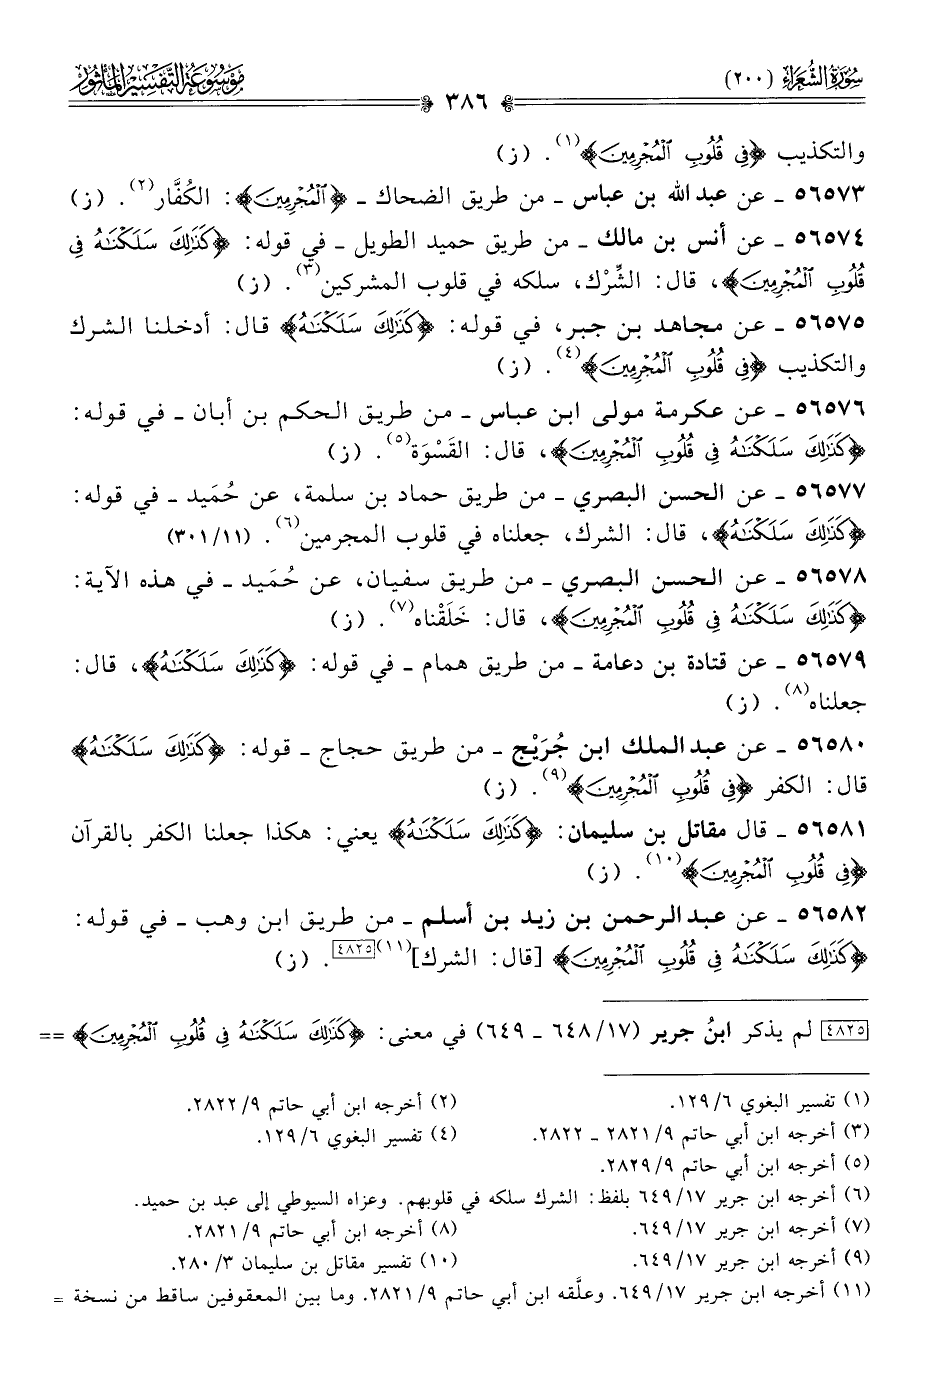 سُورَةُ الشُّعَرَاءِ (٢٠٠)
٣٨٦
مَوْسُوعَةُ التَّفْسِيرِ المَأْثُورِ
والتكذيب ﴿فِي قُلُوبِ ٱلْمُجْرِمِينَ﴾(١). (ز)
٥٦٥٧٣ ـ عن عبد الله بن عباس ـ من طريق الضحاك ـ ﴿ٱلْمُجْرِمِينَ﴾: الكُفَّار(٢). (ز)
٥٦٥٧٤ ـ عن أنس بن مالك ـ من طريق حميد الطويل ـ في قوله: ﴿كَذَٰلِكَ سَلَكْنَٰهُ فِي
قُلُوبِ ٱلْمُجْرِمِينَ﴾، قال: الشِّرْك، سلكه في قلوب المشركين(٣). (ز)
٥٦٥٧٥ ـ عن مجاهد بن جبر، في قوله: ﴿كَذَٰلِكَ سَلَكْنَٰهُ﴾ قال: أدخلنا الشرك
والتكذيب ﴿فِي قُلُوبِ ٱلْمُجْرِمِينَ﴾(٤). (ز)
٥٦٥٧٦ ـ عن عكرمة مولى ابن عباس ـ من طريق الحكم بن أبان ـ في قوله:
﴿كَذَٰلِكَ سَلَكْنَٰهُ فِي قُلُوبِ ٱلْمُجْرِمِينَ﴾، قال: القَسْوَة(٥). (ز)
٥٦٥٧٧ ـ عن الحسن البصري ـ من طريق حماد بن سلمة، عن حُمَيد ـ في قوله:
﴿كَذَٰلِكَ سَلَكْنَٰهُ﴾، قال: الشرك، جعلناه في قلوب المجرمين(٦). (٣٠١/١١)
٥٦٥٧٨ ـ عن الحسن البصري ـ من طريق سفيان، عن حُمَيد ـ في هذه الآية:
﴿كَذَٰلِكَ سَلَكْنَٰهُ فِي قُلُوبِ ٱلْمُجْرِمِينَ﴾، قال: خَلَقْناه(٧). (ز)
٥٦٥٧٩ ـ عن قتادة بن دعامة ـ من طريق همام ـ في قوله: ﴿كَذَٰلِكَ سَلَكْنَٰهُ﴾، قال:
جعلناه(٨). (ز)
٥٦٥٨٠ ـ عن عبد الملك ابن جُرَيْج ـ من طريق حجاج ـ قوله: ﴿كَذَٰلِكَ سَلَكْنَٰهُ﴾
قال: الكفر ﴿فِي قُلُوبِ ٱلْمُجْرِمِينَ﴾(٩). (ز)
٥٦٥٨١ ـ قال مقاتل بن سليمان: ﴿كَذَٰلِكَ سَلَكْنَٰهُ﴾ يعني: هكذا جعلنا الكفر بالقرآن
﴿فِي قُلُوبِ ٱلْمُجْرِمِينَ﴾(١٠). (ز)
٥٦٥٨٢ ـ عن عبد الرحمن بن زيد بن أسلم ـ من طريق ابن وهب ـ في قوله:
﴿كَذَٰلِكَ سَلَكْنَٰهُ فِي قُلُوبِ ٱلْمُجْرِمِينَ﴾ [قال: الشرك](١١)[٤٨٢٥]. (ز)
[٤٨٢٥] لم يذكر ابنُ جرير (١٧/ ٦٤٨ ـ ٦٤٩) في معنى: ﴿كَذَٰلِكَ سَلَكْنَٰهُ فِي قُلُوبِ ٱلْمُجْرِمِينَ﴾ ==
(١) تفسير البغوي ٦/ ١٢٩.
(٢) أخرجه ابن أبي حاتم ٩/ ٢٨٢٢.
(٣) أخرجه ابن أبي حاتم ٩/ ٢٨٢١ ـ ٢٨٢٢.
(٤) تفسير البغوي ٦/ ١٢٩.
(٥) أخرجه ابن أبي حاتم ٩/ ٢٨٢٩.
(٦) أخرجه ابن جرير ١٧/ ٦٤٩ بلفظ: الشرك سلكه في قلوبهم. وعزاه السيوطي إلى عبد بن حميد.
(٧) أخرجه ابن جرير ١٧/ ٦٤٩.
(٨) أخرجه ابن أبي حاتم ٩/ ٢٨٢١.
(٩) أخرجه ابن جرير ١٧/ ٦٤٩.
(١٠) تفسير مقاتل بن سليمان ٣/ ٢٨٠.
(١١) أخرجه ابن جرير ١٧/ ٦٤٩. وعلَّقه ابن أبي حاتم ٩/ ٢٨٢١. وما بين المعقوفين ساقط من نسخة =